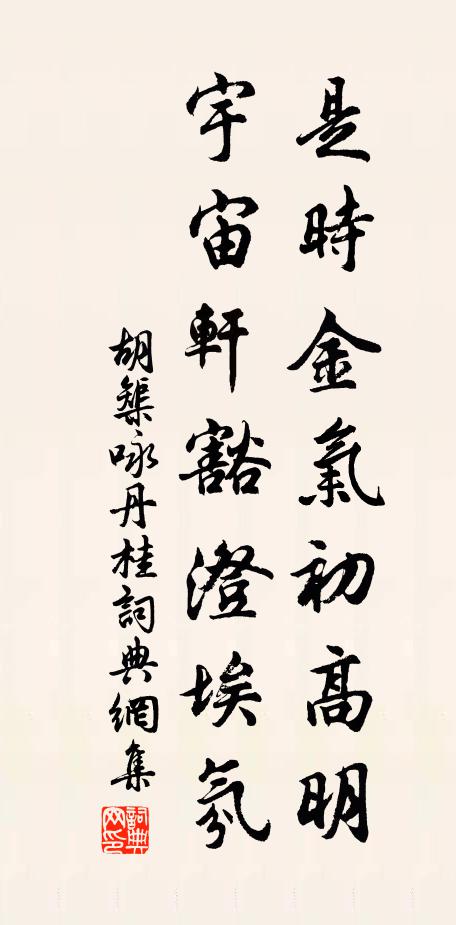 是時金氣初高明
宇宙軒豁澄埃氛
胡榘咏丹桂詞典網集
詞典网印